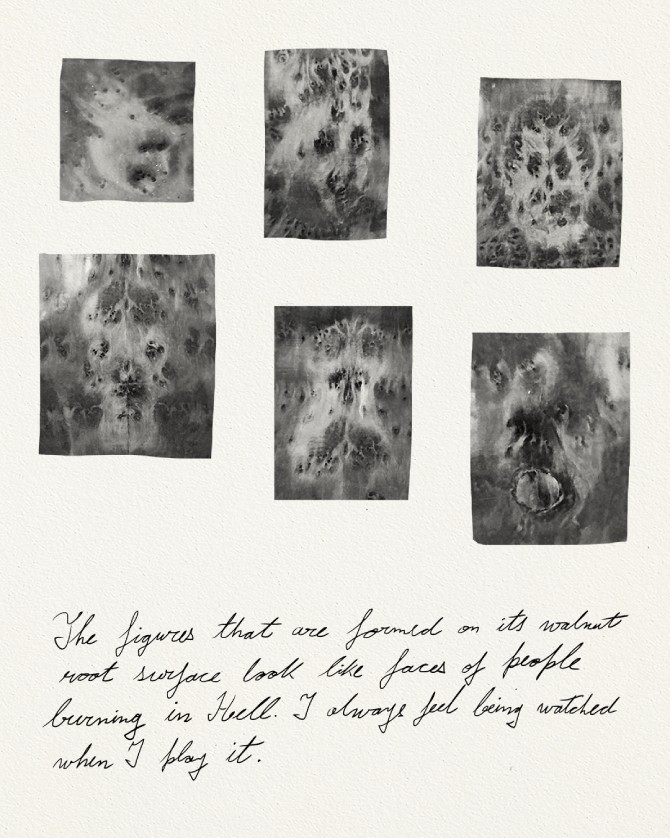 The figures that are formed on its walnut
root surface look like faces of people
burning in Hell. I always feel being watched
when I play it.